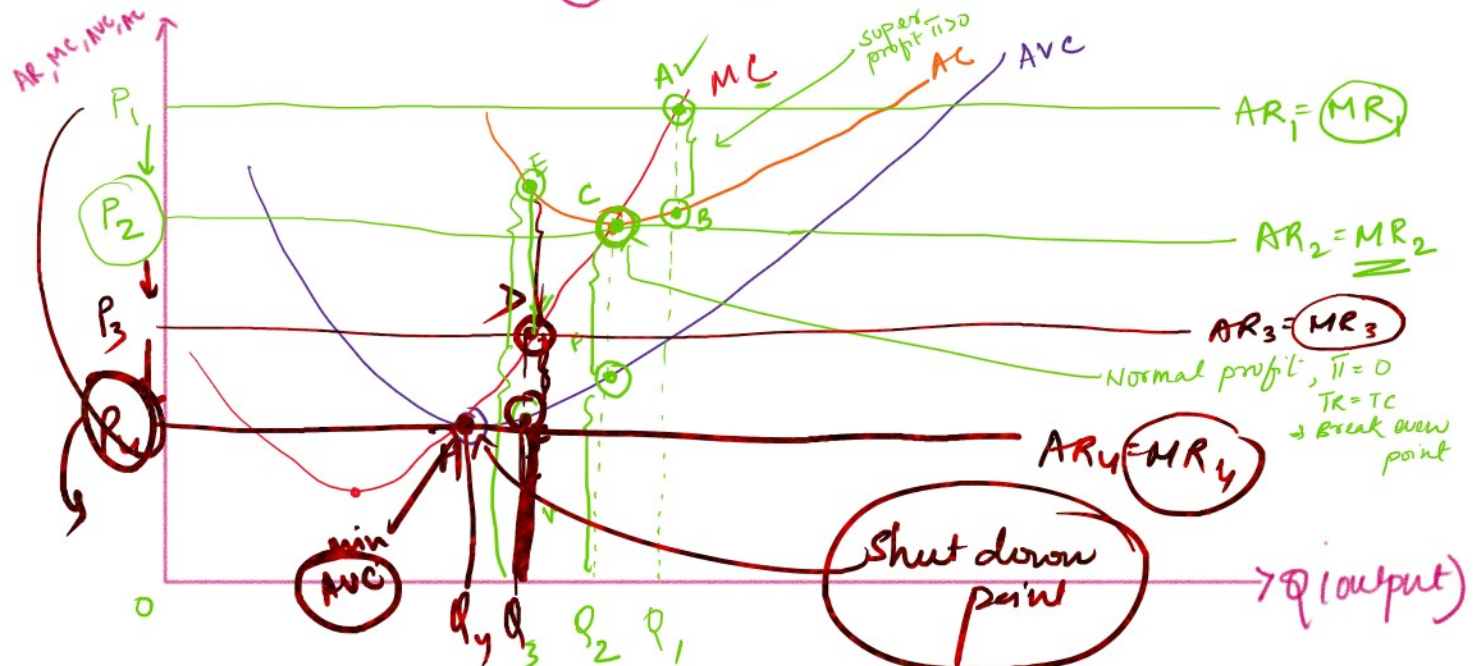 AR, MC, AVC, AC
super
profit π>0
A✓
MC
AC
AVC
P₁
AR₁ = MR₁
E
C
B
P₂
AR₂ = MR₂
D
P₃
AR₃ = MR₃
F
Normal profit, π = 0
TR = TC
→ Break even
point
P₄
A
AR₄ = MR₄
min
AVC
Shut down
point
O
Q₄
Q₃
Q₂
Q₁
Q (output)